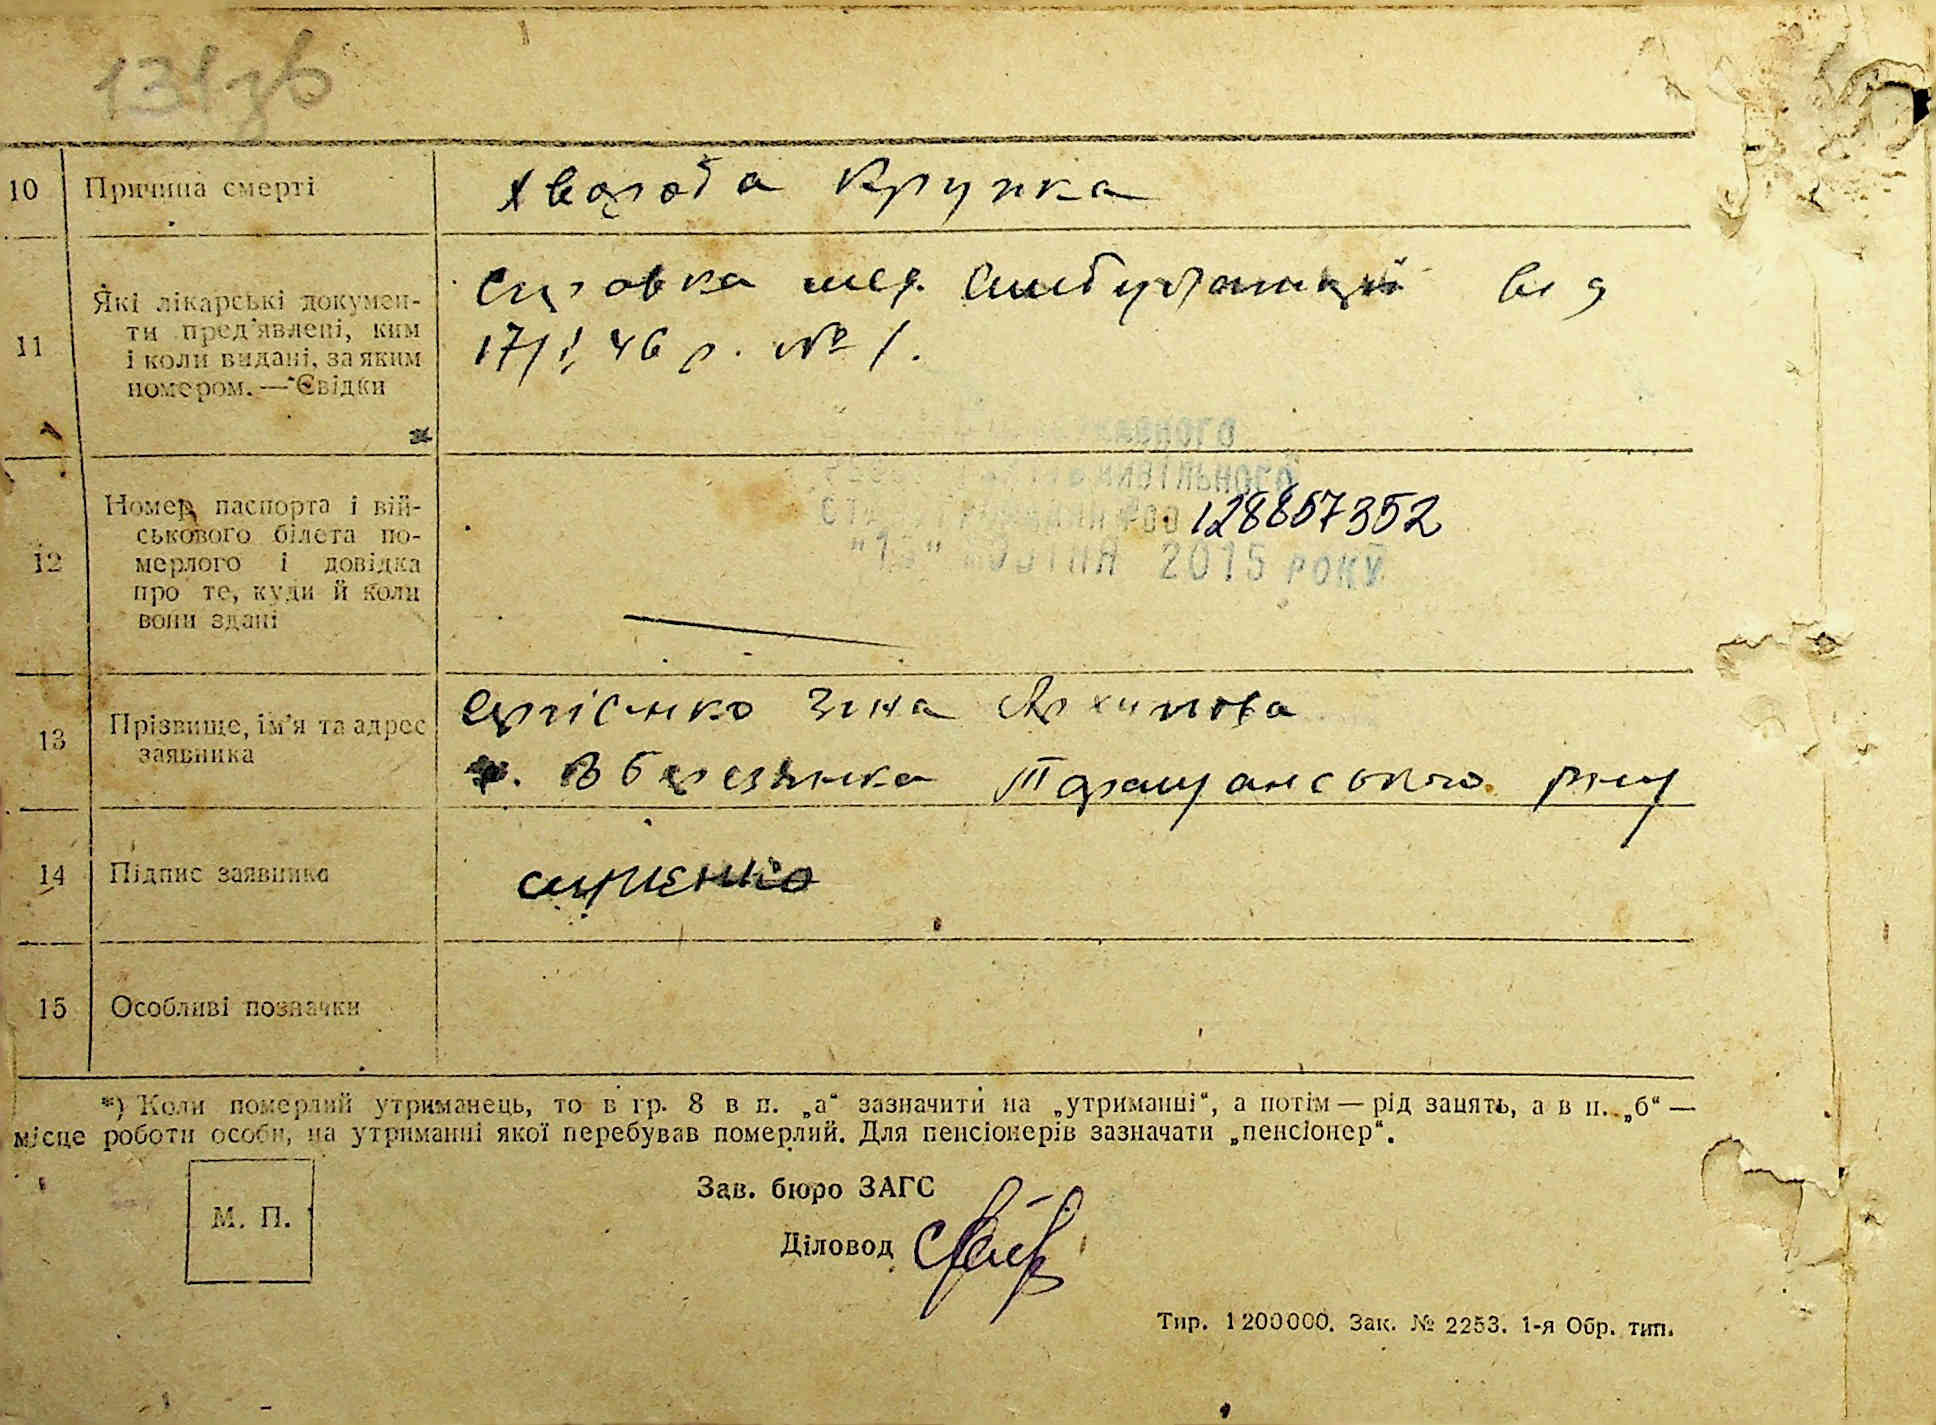 131зв
10 Причина смерті Хвороба Крупка
Які лікарські докумен-
ти пред'явлені, ким
11 і коли видані, за яким
номером. — Свідки
Справка мед. Амбулаторії від
17/I 46 р. № 1.
Номер паспорта і вій-
ськового білета по-
12 мерлого і довідка
про те, куди й коли
вони здані
128857352
2015 РОКУ
13 Прізвище, ім'я та адрес
заявника
Сергієнко Зіна Архипова
В Березянка Таращанського р-ну
14 Підпис заявника Сергиенко
15 Особливі позначки
*) Коли померлий утриманець, то в гр. 8 в п. „а“ зазначити на „утриманні“, а потім — рід занять, а в п. „б“ —
місце роботи особи, на утриманні якої перебував померлий. Для пенсіонерів зазначати „пенсіонер“.
Зав. бюро ЗАГС
М. П.
Діловод
Тир. 1200000. Зак. № 2253. 1-я Обр. тип.